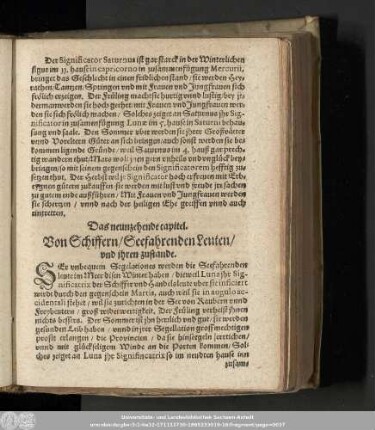 Der Significator Saturnus ist gar starck in der Winterlichen
figur im 11. hause in capricorno in zusammenfügung Mercurii,
bringet das Geschlecht in einen friedlichen stand / sie werden Hey-
rathen / Tantzen / Springen vnd mit Frauen vnd Jungfrauen sich
frölich erzeigen. Der Früling machet sie hurtig vnnd lustig bey je-
derman werden sie hoch geehret mit Frauen vnd Jungfrauen wer-
den sie sich frölich machen / Solches zeiget an Saturnus jhr Sig-
nificator in zusammenfügung Lunæ im 5. hause in Saturni behau-
sung vnd saale. Den Sommer vber werden sie jhrer Großväter
vnnd Voreltern Güter an sich bringen / auch sonst werden sie be-
kommen ligende Gründe / weil Saturnus im 4. hauß gar prech-
tig wandern thut / Mars wolt jnen gern vnheile vnd vnglück bey-
bringen / so mit seinem gegenschein den Significatorem hefftig zu-
setzen thut. Der Herbst weil jr Significator hoch erfreuen mit Erb-
eygenen gütern zukauffen sie werden mit lust vnd freude jre sachen
zu gutem ende ausführen / Mit Frauen vnd Jungfrauen werden
sie schertzen / vnnd nach der heiligen Ehe greiffen vnnd auch
eintretten.
Das neunzehende capitel.
Von Schiffern / Seefahrenden Leuten /
vnd ihren zustande.
SEer vnbequem Segulationes werden die Seefahrenden
leute im Meer disen Winter haben / dieweil Luna jhr Sig-
nificatrix der Schiffer vnd Handelsleute vber sie inficiert
wird durch den gegenschein Martis, auch weil sie in angulo oc-
cidentali stehet / wil sie zurichten in der See von Räubern vnnd
Freybeutern / groß widerwertigkeit. Der Früling verheist jhnen
nichts bessers. Der Sommer ist jhn herrlich vnd gut / sie werden
gesunden Leib haben / vnnd in jrer Segellation großmechtigen
profit erlangen / die Provincien / da sie hinsegeln / erreichen /
vnnd mit glückseligem Winde an die Porten kommen. Sol-
ches zeiget an Luna jhr Significatrix so im neundten hause inn
zusams
Universitäts- und Landesbibliothek Sachsen-Anhalt